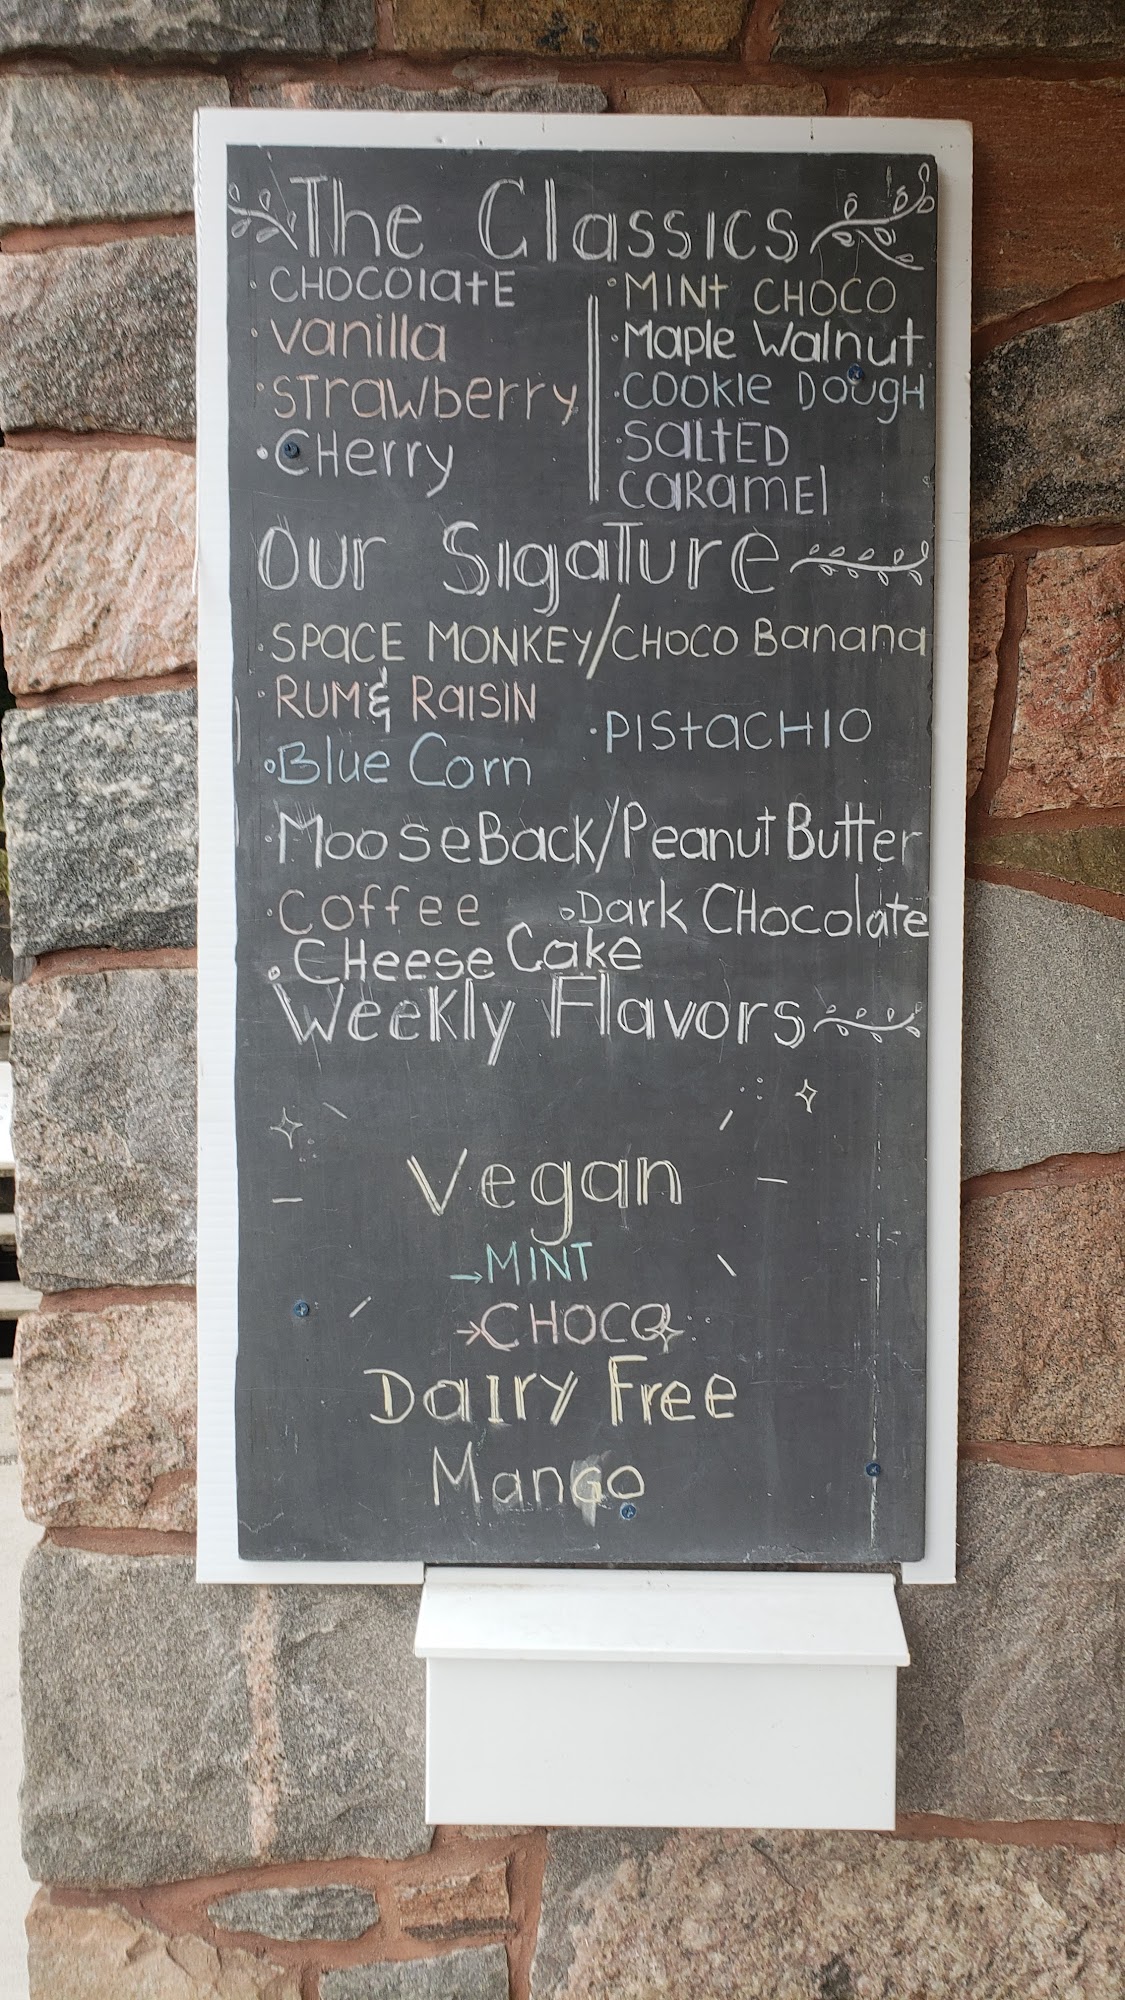 The Classics
· CHOCOlatE
· Vanilla
· STrawberry
· CHerry
· MINt CHOCO
· Maple Walnut
· COOKIE DOUGH
· SaltED
CaRamEl
Our Sigature
· SPaCE MONKEY/CHOCO Banana
· RUM & RaISIN
· PIStaCHIO
· Blue Corn
· MooseBack/Peanut Butter
· Coffee · Dark CHocolate
· CHeese Cake
Weekly Flavors
Vegan
→ MINT
→ CHOCO
Dairy Free
Mango